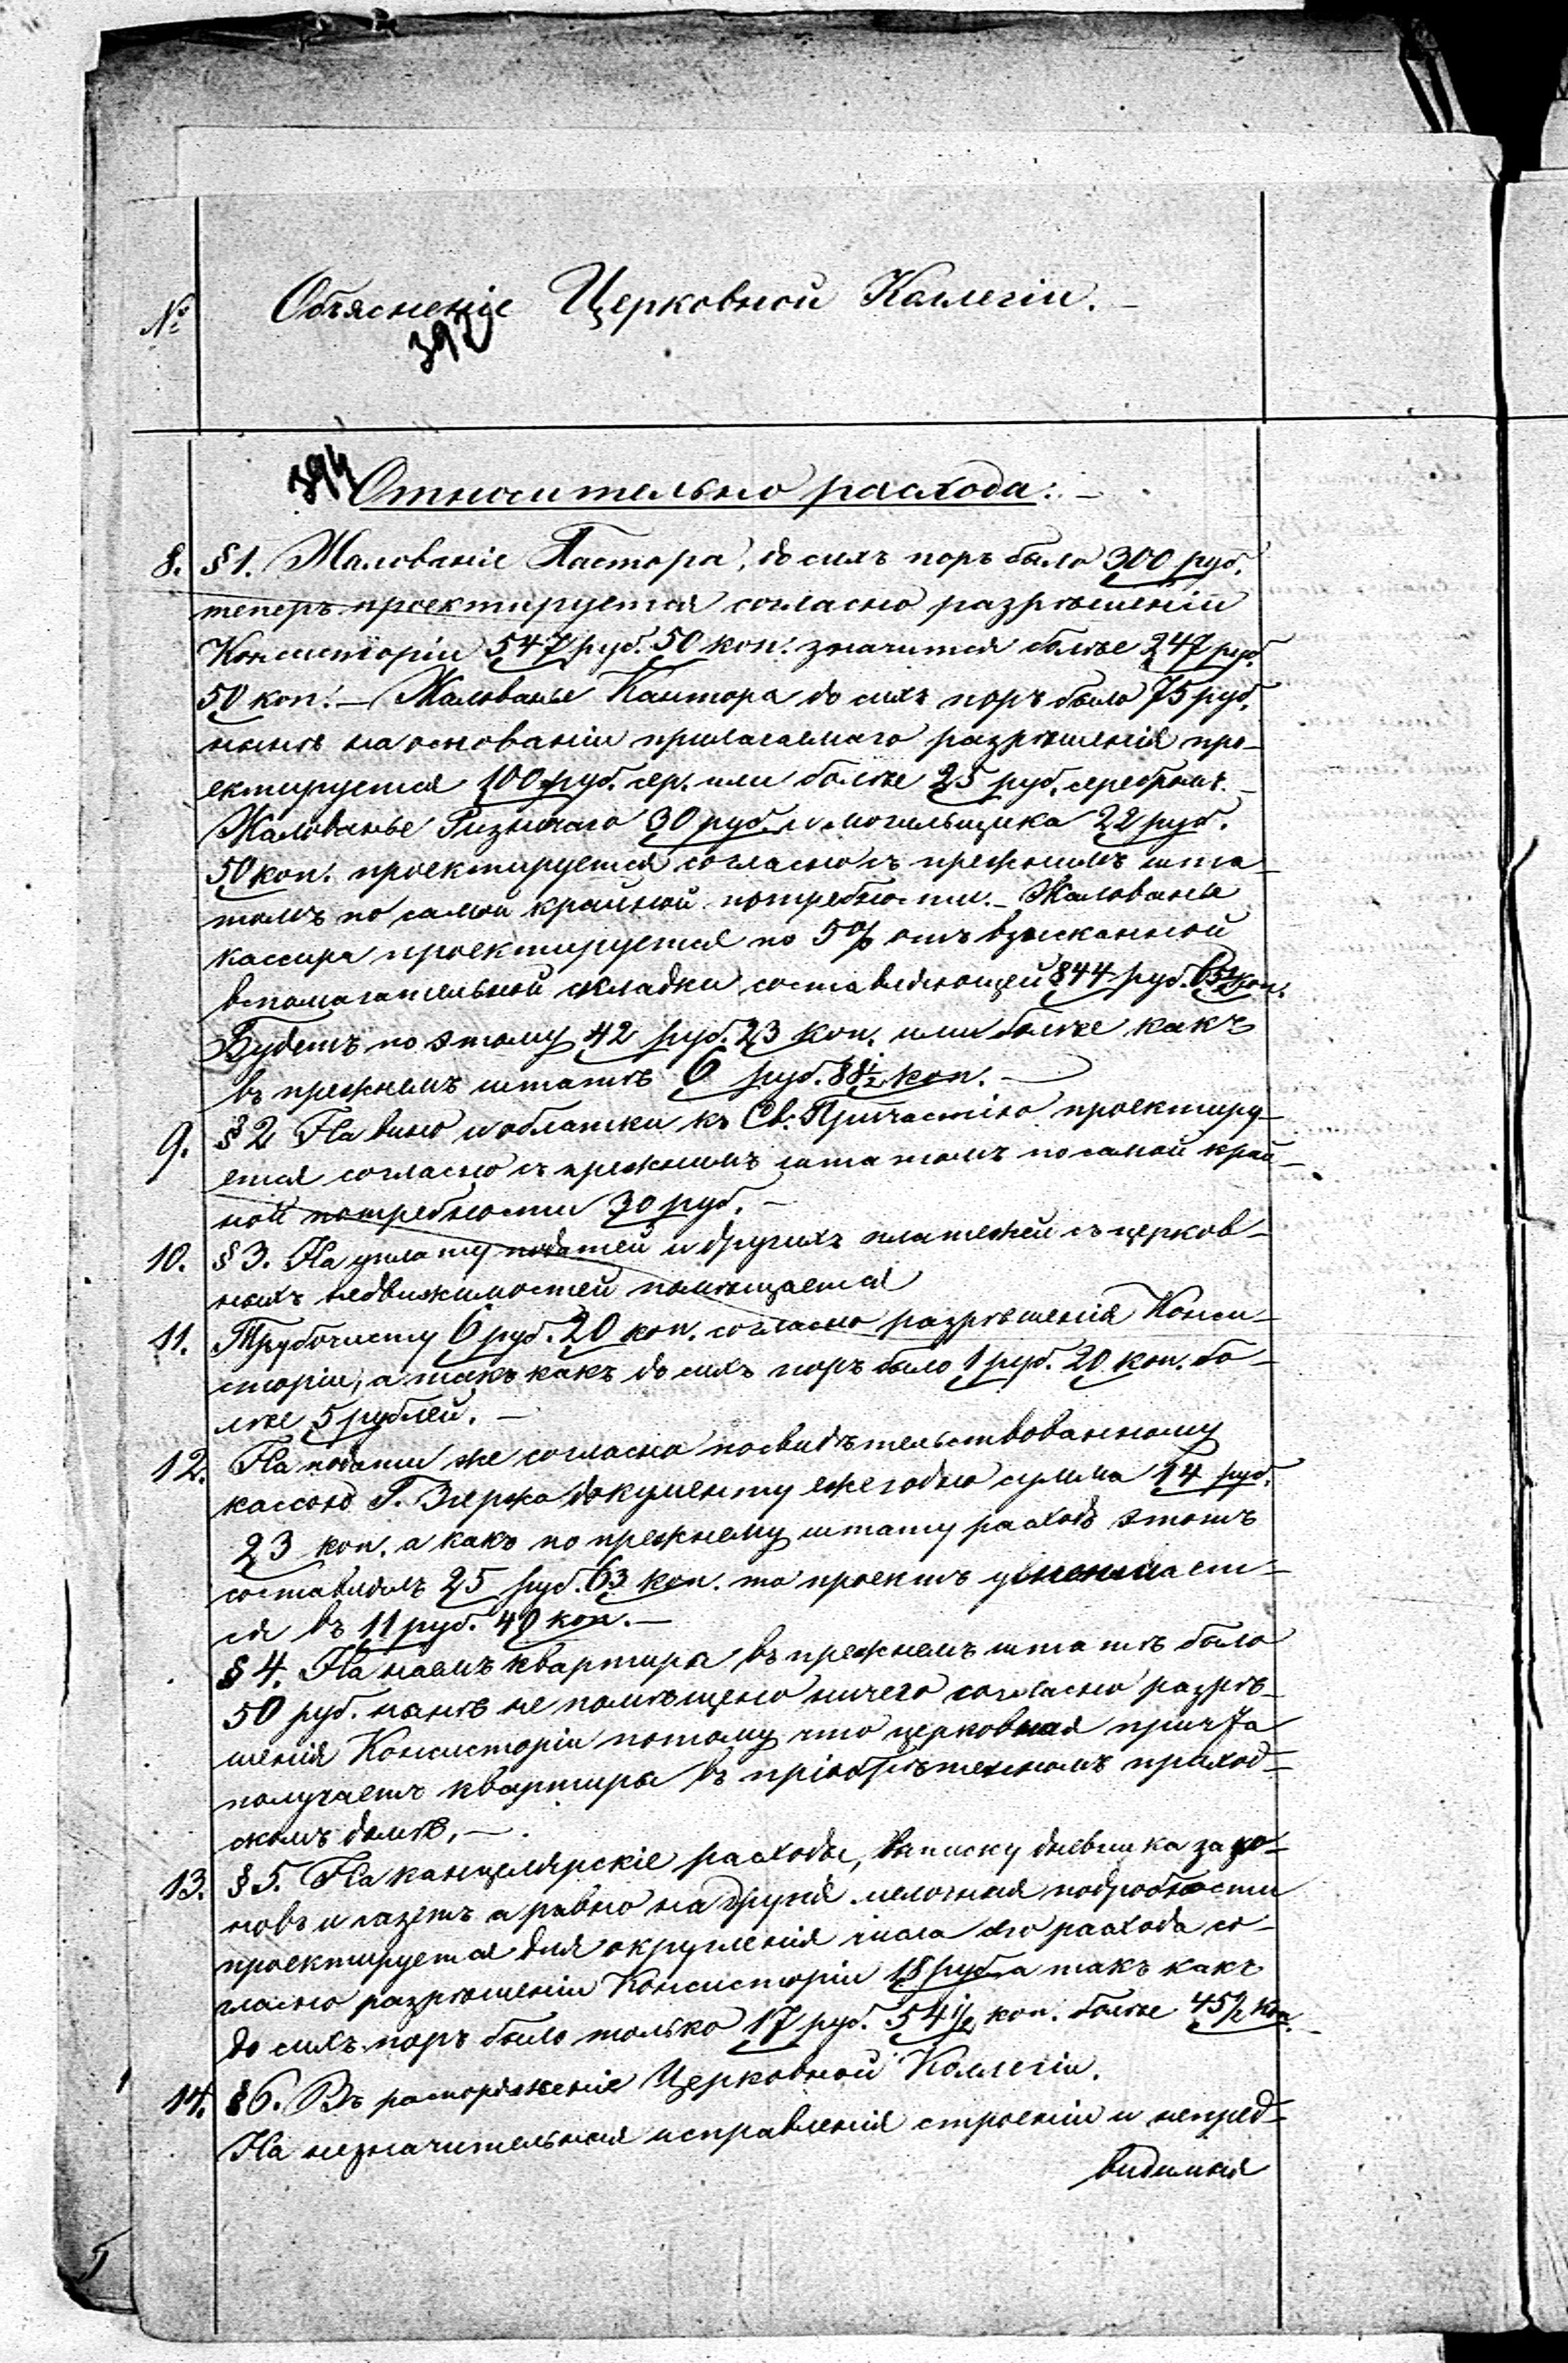 №
Объясненіе Церковной Коллегіи. —
392
394
Относительно расхода: —
8. §1. Жалованіе Пастора, до сихъ поръ было 300 руб.
теперъ проектируется согласно разрѣшеніи
Консисторіи 547 руб. 50 коп. значится болѣе 247 руб.
50 коп. — Жалованье Кантора до сихъ поръ было 75 руб.
нынѣ на основаніи прилагаемаго разрѣшенія про-
ектируется 100 руб. сер. или болѣе 25 руб. серебромъ. —
Жалованье Ризничаго 30 руб. и могильщика 22 руб.
50 коп. проектируется согласно съ прежнимъ шта-
томъ по самой крайной потребности. — Жалованье
кассира проектируется по 5% отъ взысканной
вспомагательной складки составляющей 844 руб. 63½ коп.
Будетъ по этому 42 руб. 23 коп. или болѣе какъ
въ прежнемъ штатѣ 6 руб. 88½ коп. —
9. §2 На вино и облатки къ Св. Причастію проектиру-
ется согласно съ прежнимъ штатомъ по самой край-
ной потребности 30 руб. —
10. §3. На уплату податей и другихъ платежей съ церков-
ныхъ недвижимостей помѣщается
11. Трубочисту 6 руб. 20 коп. согласно разрѣшенія Конси-
сторіи, а такъ какъ до сихъ поръ было 1 руб. 20 коп. бо-
лѣе 5 рублей. —
12. На подати же согласно посвидѣтельствованному
кассою Г. Згержа документу ежегодно сумма 14 руб.
23 коп. а какъ по прежнему штату расходъ этотъ
составлялъ 25 руб. 63 коп. то проектъ уменшает-
ся въ 11 руб. 40 коп. —
§4. На наемъ квартиры въ прежнемъ штатѣ было
50 руб. нынѣ не помѣщено ничего согласно разрѣ-
шенія Консисторіи потому что церковная
получаетъ квартиры въ пріобрѣтенномъ приход-
скомъ домѣ, —.
13. §5. На канцелярскіе расходы, выписку дневника зако-
новъ и газетъ а равно на другія мелочная подробности
проектируется для округленія расхода со-
гласно разрѣшеніи Консисторіи 18 руб. а такъ какъ
до сихъ поръ было только 17 руб. 54½ коп. болѣе 45½ коп. —
14. §6. Въ распоряженіе Церковной Коллегіи.
На незначительная исправленія строеніи и непред-
видимая